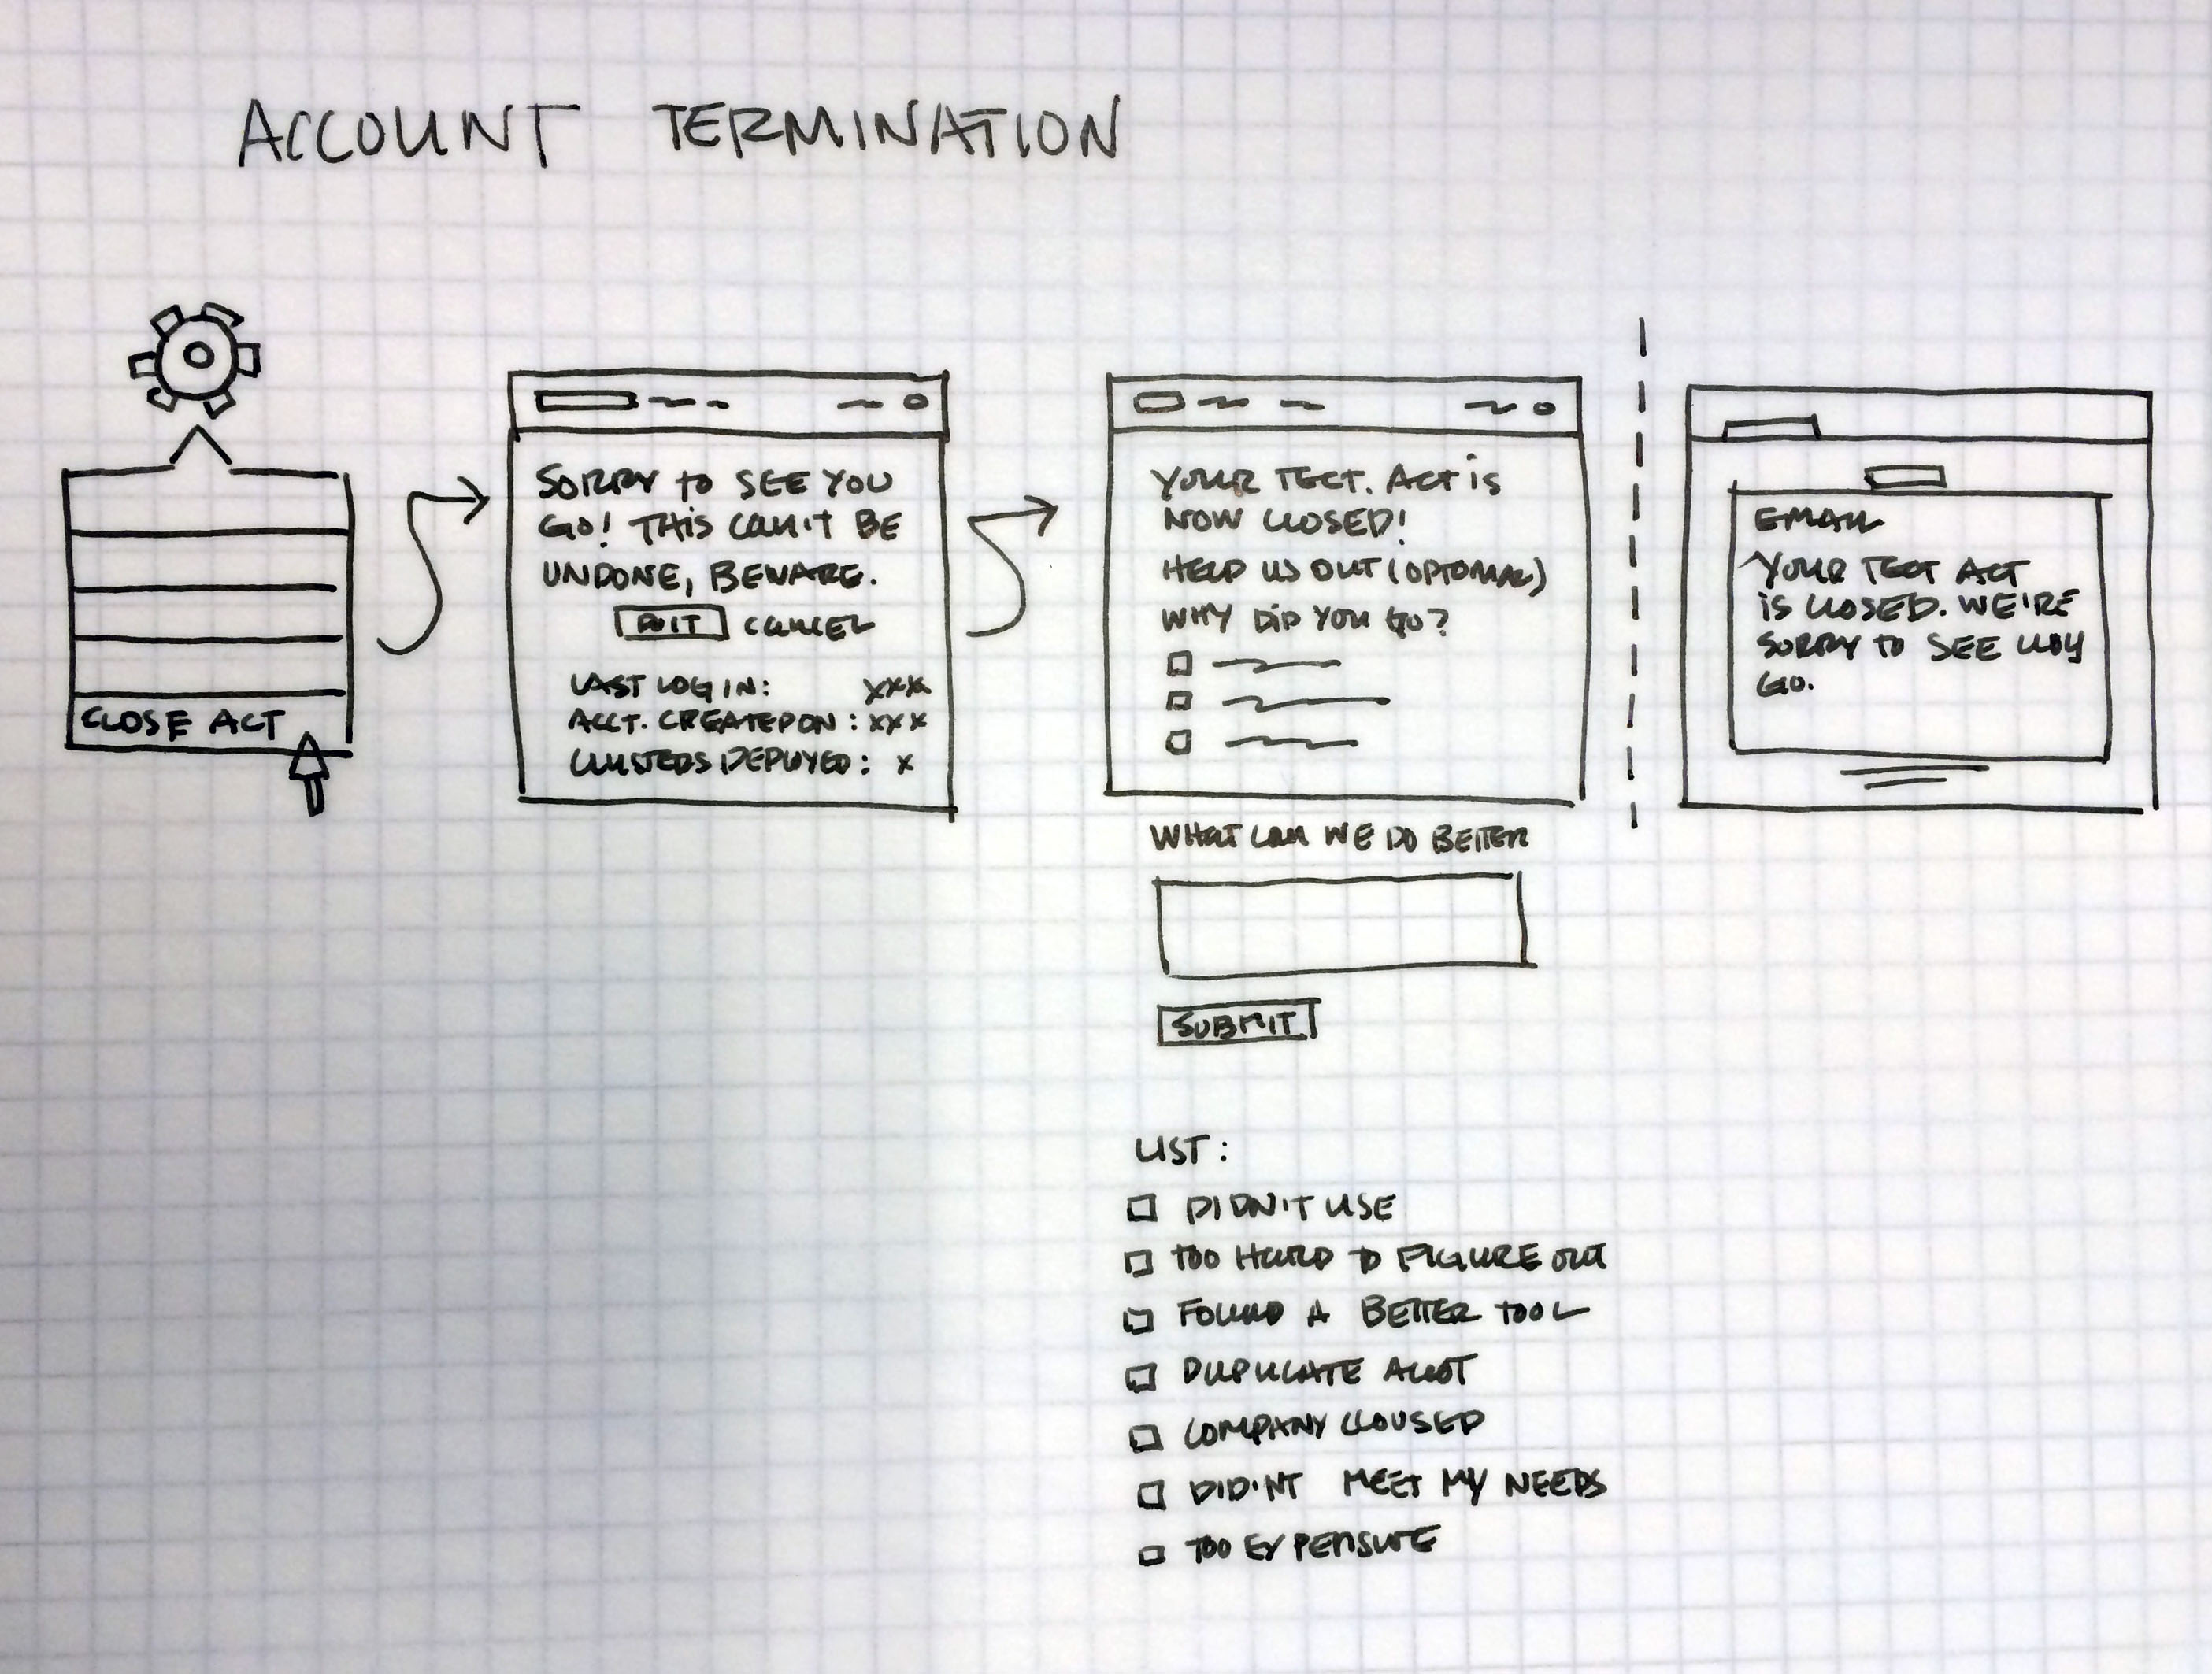 ACCOUNT TERMINATION
CLOSE ACT
SORRY TO SEE YOU
GO! THIS CAN'T BE
UNDONE, BEWARE.
CANCEL
LAST LOG IN: XXX
ACCT. CREATED ON: XXX
CLUSTERS DEPLOYED: X
YOUR TECT. ACT IS
NOW CLOSED!
HELP US OUT (OPTIONAL)
WHY DID YOU GO?
WHAT CAN WE DO BETTER
SUBMIT
LIST:
DIDN'T USE
TOO HARD TO FIGURE OUT
FOUND A BETTER TOOL
DUPLICATE ACCT
COMPANY CLOUSED
DID'NT MEET MY NEEDS
TOO EXPENSIVE
EMAIL
YOUR TECT ACT
IS CLOSED. WE'RE
SORRY TO SEE YOU
GO.